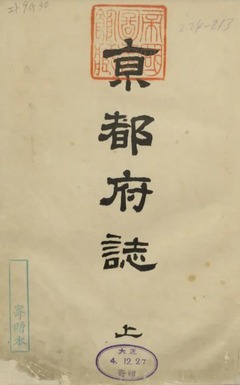 224-213
京都府誌
上
寄贈本
大正
4.12.27
寄贈